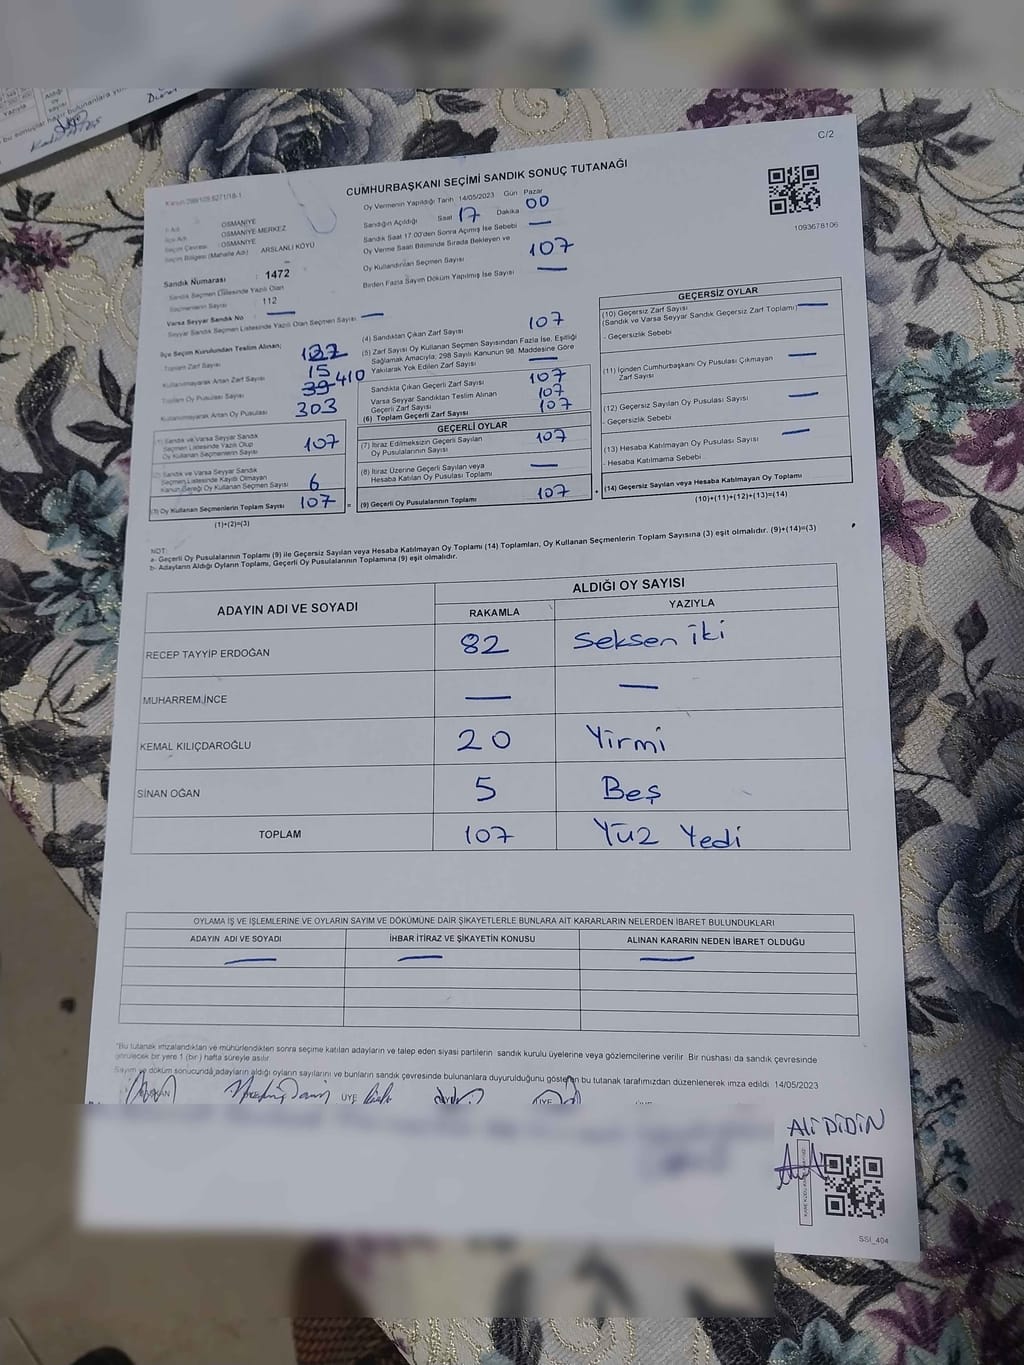 C/2
CUMHURBAŞKANI SEÇİMİ SANDIK SONUÇ TUTANAĞI
1093678106
İl Adı : OSMANİYE
İlçe Adı : OSMANİYE MERKEZ
Seçim Çevresi : OSMANİYE
Seçim Bölgesi (Mahalle Adı) : ARSLANLI KÖYÜ
Sandık Numarası : 1472
Sandık Seçmen Listesinde Yazılı Olan
Seçmenlerin Sayısı : 112
Varsa Seyyar Sandık No —
Seyyar Sandık Seçmen Listesinde Yazılı Olan Seçmen Sayısı —
Oy Vermenin Yapıldığı Tarih 14/05/2023 Gün Pazar
Sandığın Açıldığı Saat 17 Dakika 00
Sandık Saat 17.00'den Sonra Açımış İse Sebebi —
Oy Verme Saati Bitiminde Sırada Bekleyen ve
Oy Kullandırılan Seçmen Sayısı 107
Birden Fazla Sayım Döküm Yapılmış İse Sayısı —
İlçe Seçim Kurulundan Teslim Alınan;
Toplam Zarf Sayısı
Kullanılmayarak Artan Zarf Sayısı 15
Toplam Oy Pusulası Sayısı 39 410
Kullanılmayarak Artan Oy Pusulası 303
(1) Sandık ve Varsa Seyyar Sandık
Seçmen Listesinde Yazılı Olup
Oy Kullanan Seçmenlerin Sayısı 107
(2) Sandık ve Varsa Seyyar Sandık
Seçmen Listesinde Kayıtlı Olmayan
Kanun Gereği Oy Kullanan Seçmen Sayısı 6
(3) Oy Kullanan Seçmenlerin Toplam Sayısı 107
(1)+(2)=(3)
(4) Sandıktan Çıkan Zarf Sayısı 107
(5) Zarf Sayısı Oy Kullanan Seçmen Sayısından Fazla İse, Eşitliği
Sağlamak Amacıyla; 298 Sayılı Kanunun 98. Maddesine Göre
Yakılarak Yok Edilen Zarf Sayısı —
Sandıkta Çıkan Geçerli Zarf Sayısı 107
Varsa Seyyar Sandıktan Teslim Alınan
Geçerli Zarf Sayısı 107
(6) Toplam Geçerli Zarf Sayısı 107
GEÇERLİ OYLAR
(7) İtiraz Edilmeksizin Geçerli Sayılan
Oy Pusulalarının Sayısı 107
(8) İtiraz Üzerine Geçerli Sayılan veya
Hesaba Katılan Oy Pusulası Toplamı —
(9) Geçerli Oy Pusulalarının Toplamı 107
GEÇERSİZ OYLAR
(10) Geçersiz Zarf Sayısı
(Sandık ve Varsa Seyyar Sandık Geçersiz Zarf Toplamı) —
- Geçersizlik Sebebi
(11) İçinden Cumhurbaşkanı Oy Pusulası Çıkmayan
Zarf Sayısı —
(12) Geçersiz Sayılan Oy Pusulası Sayısı —
- Geçersizlik Sebebi
(13) Hesaba Katılmayan Oy Pusulası Sayısı —
- Hesaba Katılmama Sebebi
(14) Geçersiz Sayılan veya Hesaba Katılmayan Oy Toplamı
(10)+(11)+(12)+(13)=(14)
NOT:
a- Geçerli Oy Pusulalarının Toplamı (9) ile Geçersiz Sayılan veya Hesaba Katılmayan Oy Toplamı (14) Toplamları, Oy Kullanan Seçmenlerin Toplam Sayısına (3) eşit olmalıdır. (9)+(14)=(3)
b- Adayların Aldığı Oyların Toplamı, Geçerli Oy Pusulalarının Toplamına (9) eşit olmalıdır.
ADAYIN ADI VE SOYADI
ALDIĞI OY SAYISI
RAKAMLA YAZIYLA
RECEP TAYYİP ERDOĞAN 82 Seksen iki
MUHARREM İNCE — —
KEMAL KILIÇDAROĞLU 20 Yirmi
SİNAN OĞAN 5 Beş
TOPLAM 107 Yüz Yedi
OYLAMA İŞ VE İŞLEMLERİNE VE OYLARIN SAYIM VE DÖKÜMÜNE DAİR ŞİKAYETLERLE BUNLARA AİT KARARLARIN NELERDEN İBARET BULUNDUKLARI
ADAYIN ADI VE SOYADI İHBAR İTİRAZ VE ŞİKAYETİN KONUSU ALINAN KARARIN NEDEN İBARET OLDUĞU
— — —
"Bu tutanak imzalandıktan ve mühürlendikten sonra seçime katılan adayların ve talep eden siyasi partilerin sandık kurulu üyelerine veya gözlemcilerine verilir. Bir nüshası da sandık çevresinde
görülecek bir yere 1 (bir) hafta süreyle asılır
Sayım ve döküm sonucunda adayların aldığı oyların sayılarını ve bunların sandık çevresinde bulunanlara duyurulduğunu gösteren bu tutanak tarafımızdan düzenlenerek imza edildi. 14/05/2023
ÜYE
ALİ DİDİN
SSI_404